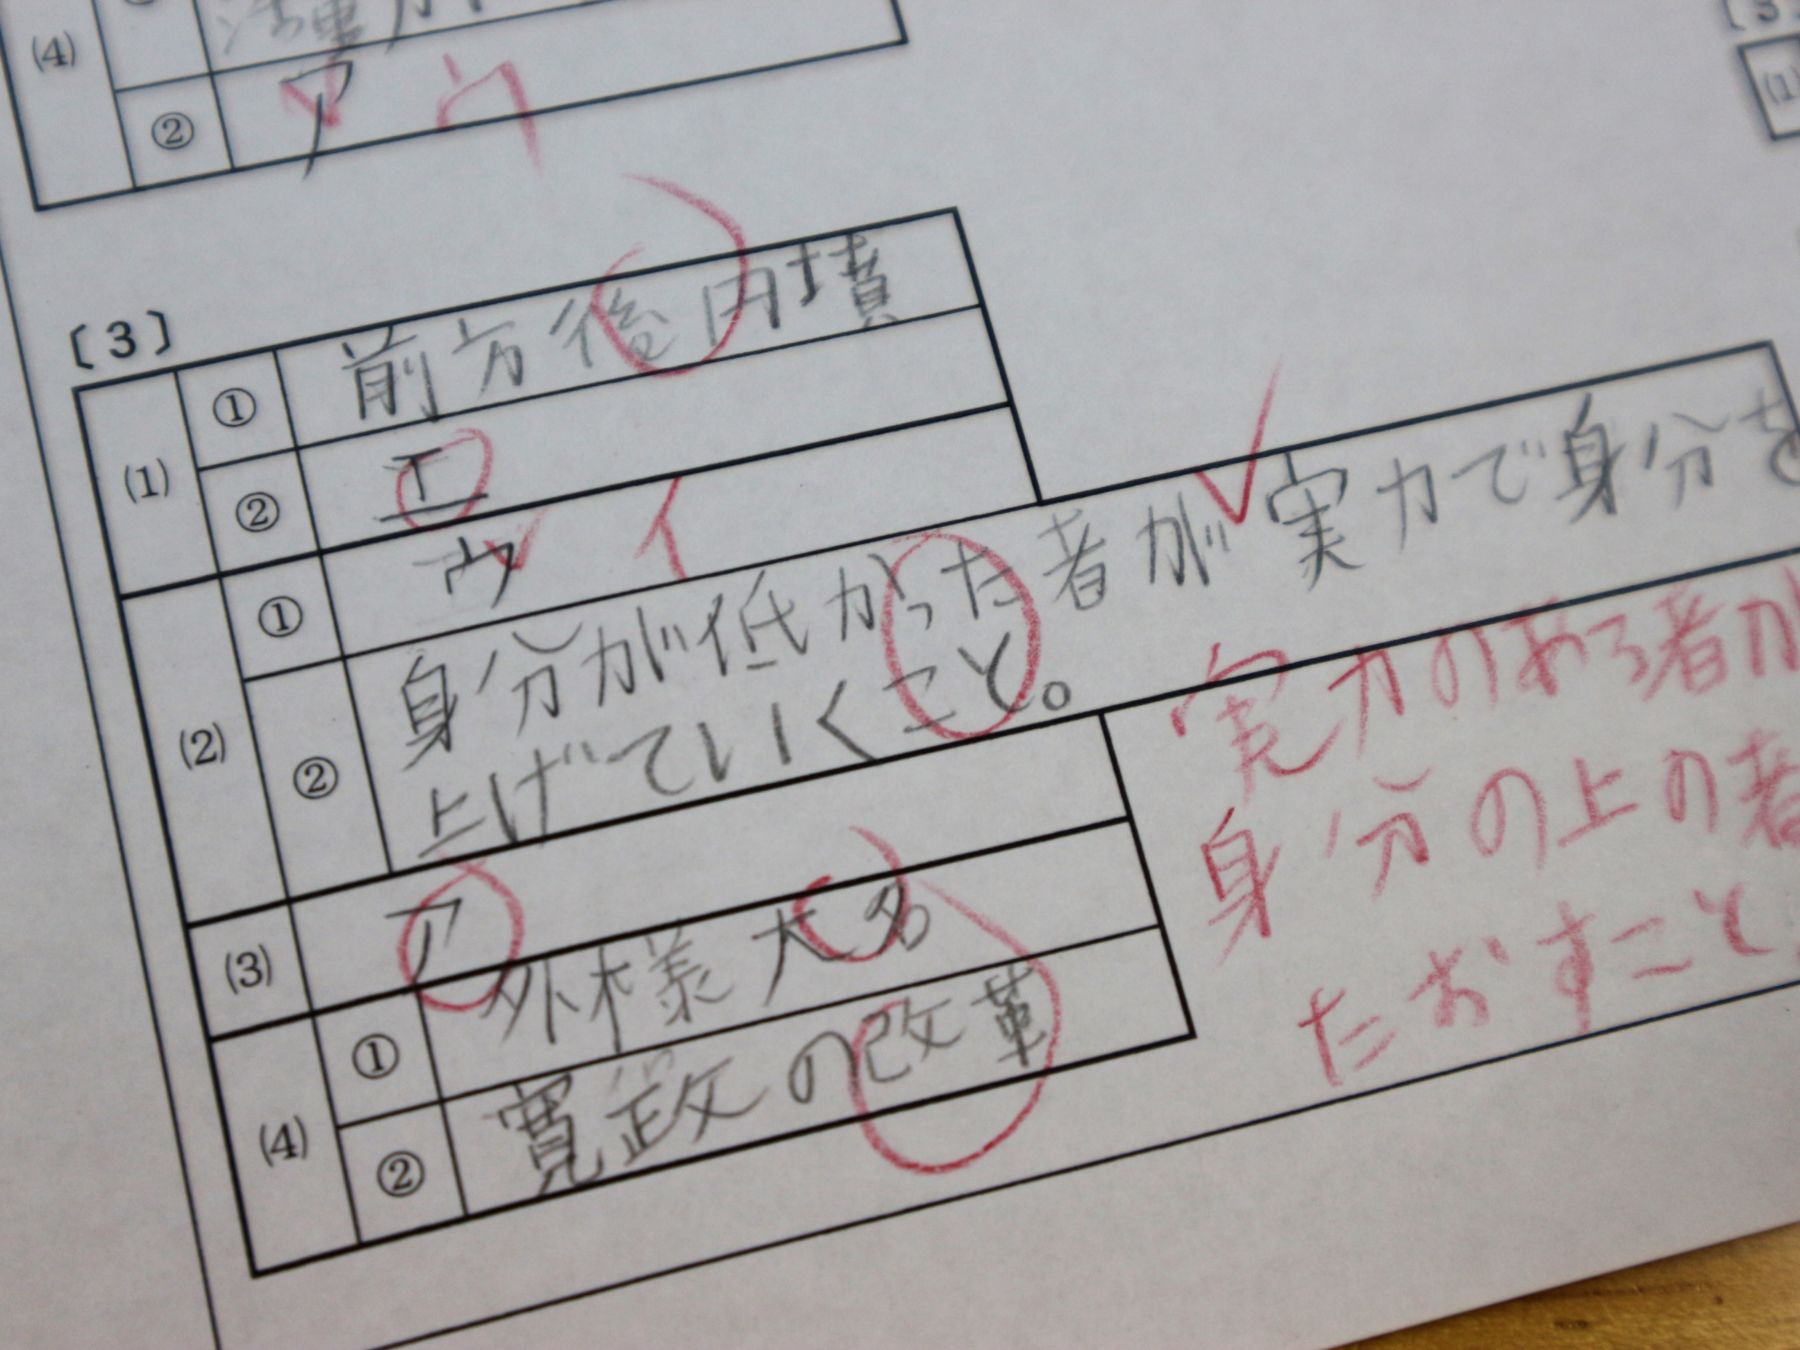 (4)
② ア ウ
〔3〕
(1) ① 前方後円墳
② エ
(2) ① ウ イ
② 身分が低かった者が実力で身分を
上げていくこと。
実力のある者が
身分の上の者
たおすこと
(3) ア
(4) ① 外様大名
② 寛政の改革
(1)